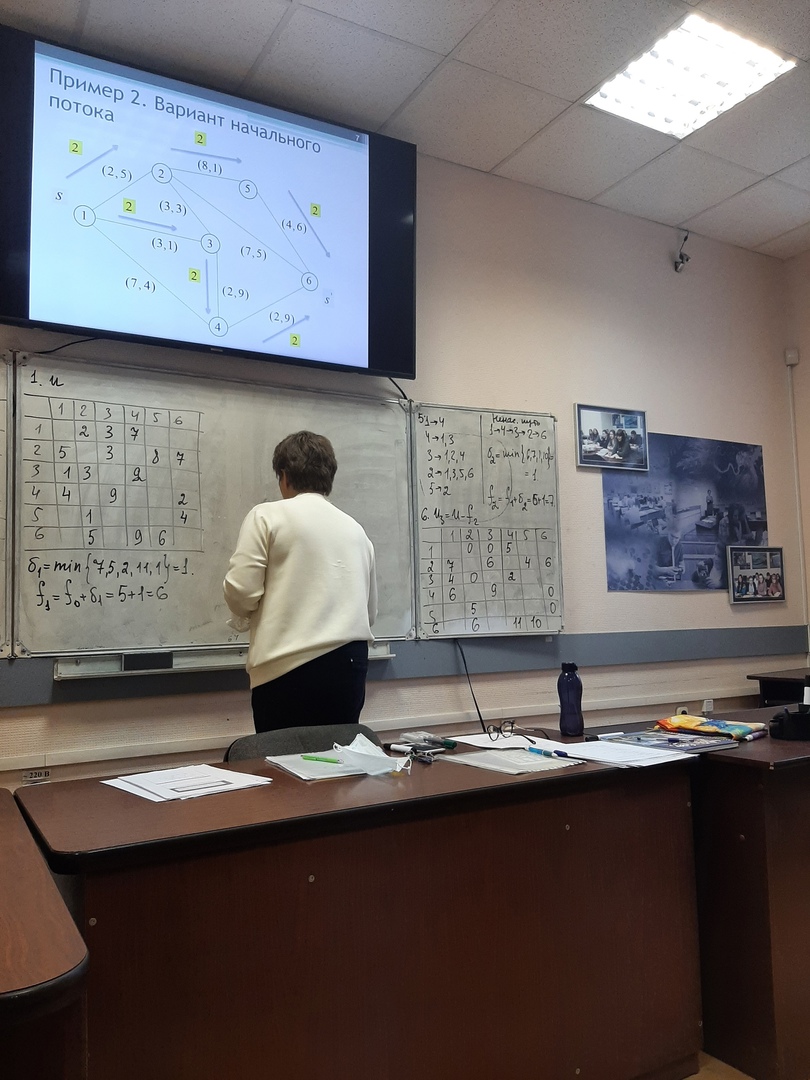 Пример 2. Вариант начального
потока
7
2
2
(2,5)
2
(8,1)
5
s
2
(3,3)
2
(4,6)
1
(3,1)
3
(7,5)
(7,4)
2
(2,9)
6
s'
4
(2,9)
2
1. u
1 2 3 4 5 6
1 2 3 7
2 5 3 8 7
3 1 3 9
4 4 9 2
5 1 4
6 5 9 6
δ₁=min{7,5,2,11,1}=1.
f₁=f₀+δ₁=5+1=6
5.1→4
4→1,3
3→1,2,4
2→1,3,5,6
5→2
1→4→3→2→6
= 1
f₂=f₁+δ₂=6+1=7
6. u₃=u-f₂
1 2 3 4 5 6
1 0 0 5
2 7 6 4 6
3 4 0 2
4 6 9 0
5 5 0
6 6 11 10
220 В